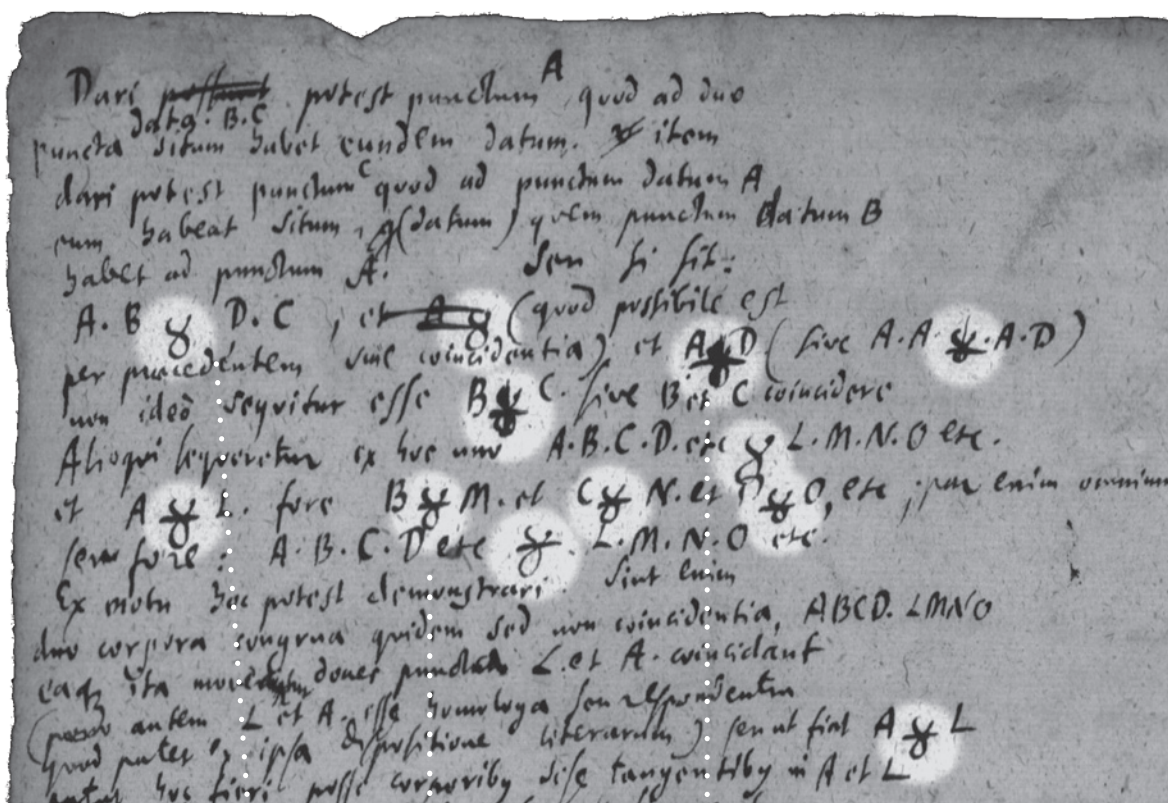 Dari possunt potest punctum A quod ad duo
data. B.C
puncta situm habet eundem datum. item
dari potest punctum C quod ad punctum datum A
eum habeat situm, (datum) quem punctum datum B
habet ad punctum A. Seu si sit:
A. B ४ D. C , et A ४ (quod possibile est
per praecedentem sine coincidentia) et A ४ D (sive A. A. ४. A. D)
non ideo sequitur esse B ४ C. sive B et C coincidere
Alioqui sequeretur ex hoc uno A.B.C.D. etc ४ L.M.N.O etc.
et A ४ L. fore B ४ M. et C ४ N. et D ४ O, etc ; enim omnium
seu fore : A. B. C. D etc ४ L. M. N. O etc.
Ex motu hoc potest demonstrari. Sint enim
duo corpora congrua quidem sed non coincidentia, ABCD. LMNO
eaq ita donec puncta L. et A. coincidant
(autem L et A. esse homologa seu respondentia
quod patet ex ipsa dispositione literarum) seu ut fiat A ४ L
hoc fieri posse corporibus sese tangentibus in A et L